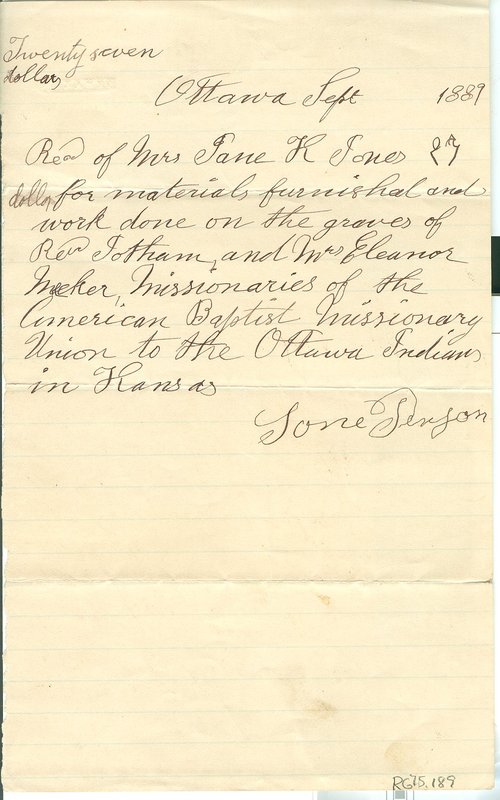 Twenty seven
dollars
Ottawa Sept 1889
Recd of Mrs Jane K Jones 27
dollars for materials furnished and
work done on the graves of
Rev Jotham, and Mrs Eleanor
Meeker, Missionaries of the
American Baptist Missionary
Union to the Ottawa Indians
in Kansas
Sone Person
RG75.189